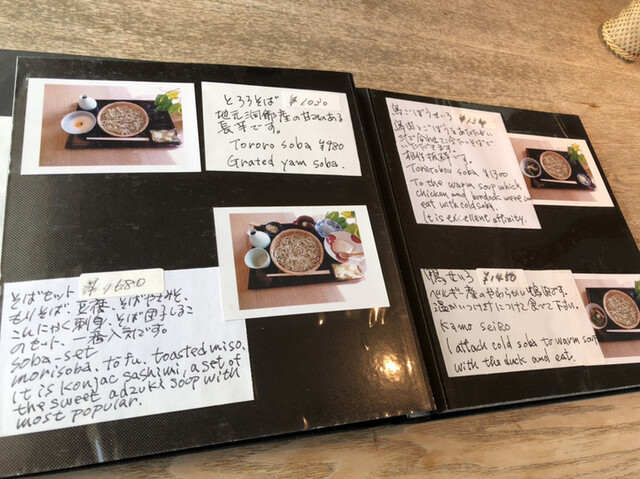 とろろそば ¥1030
地元洞爺産の甘みのある
長芋です。
Tororo soba ¥980
Grated yam soba.
そばセット ¥1680
もりそば、豆腐、そばやきみそ、
こんにゃく刺身、そば団子しるこ
のセート、一番人気です。
soba-set
morisoba, tofu, toasted miso,
It is konjac sashimi, a set of
the sweet adzuki soup with
most popular.
鳥ごぼうせいろ
鶏肉とごぼうを
いただきます。
相性抜群です。
Torigobou soba ¥1300
To the warm soup which
chicken and bordock were in
eat with cold soba.
It is excellent affinity.
鴨せいろ
ベルギー産のやわらかい鴨肉です。
温かいつけ汁につけて食べて下さい。
Kamo Seiro
I attach cold soba to warm soup
with the duck and eat.